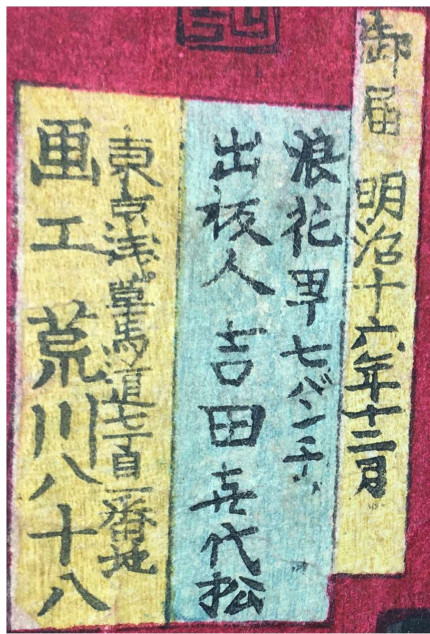 御届 明治十六年十二月
浪花甼七バンチ
出板人 吉田喜代松
東京浅草馬道七丁目一番地
画工 荒川八十八